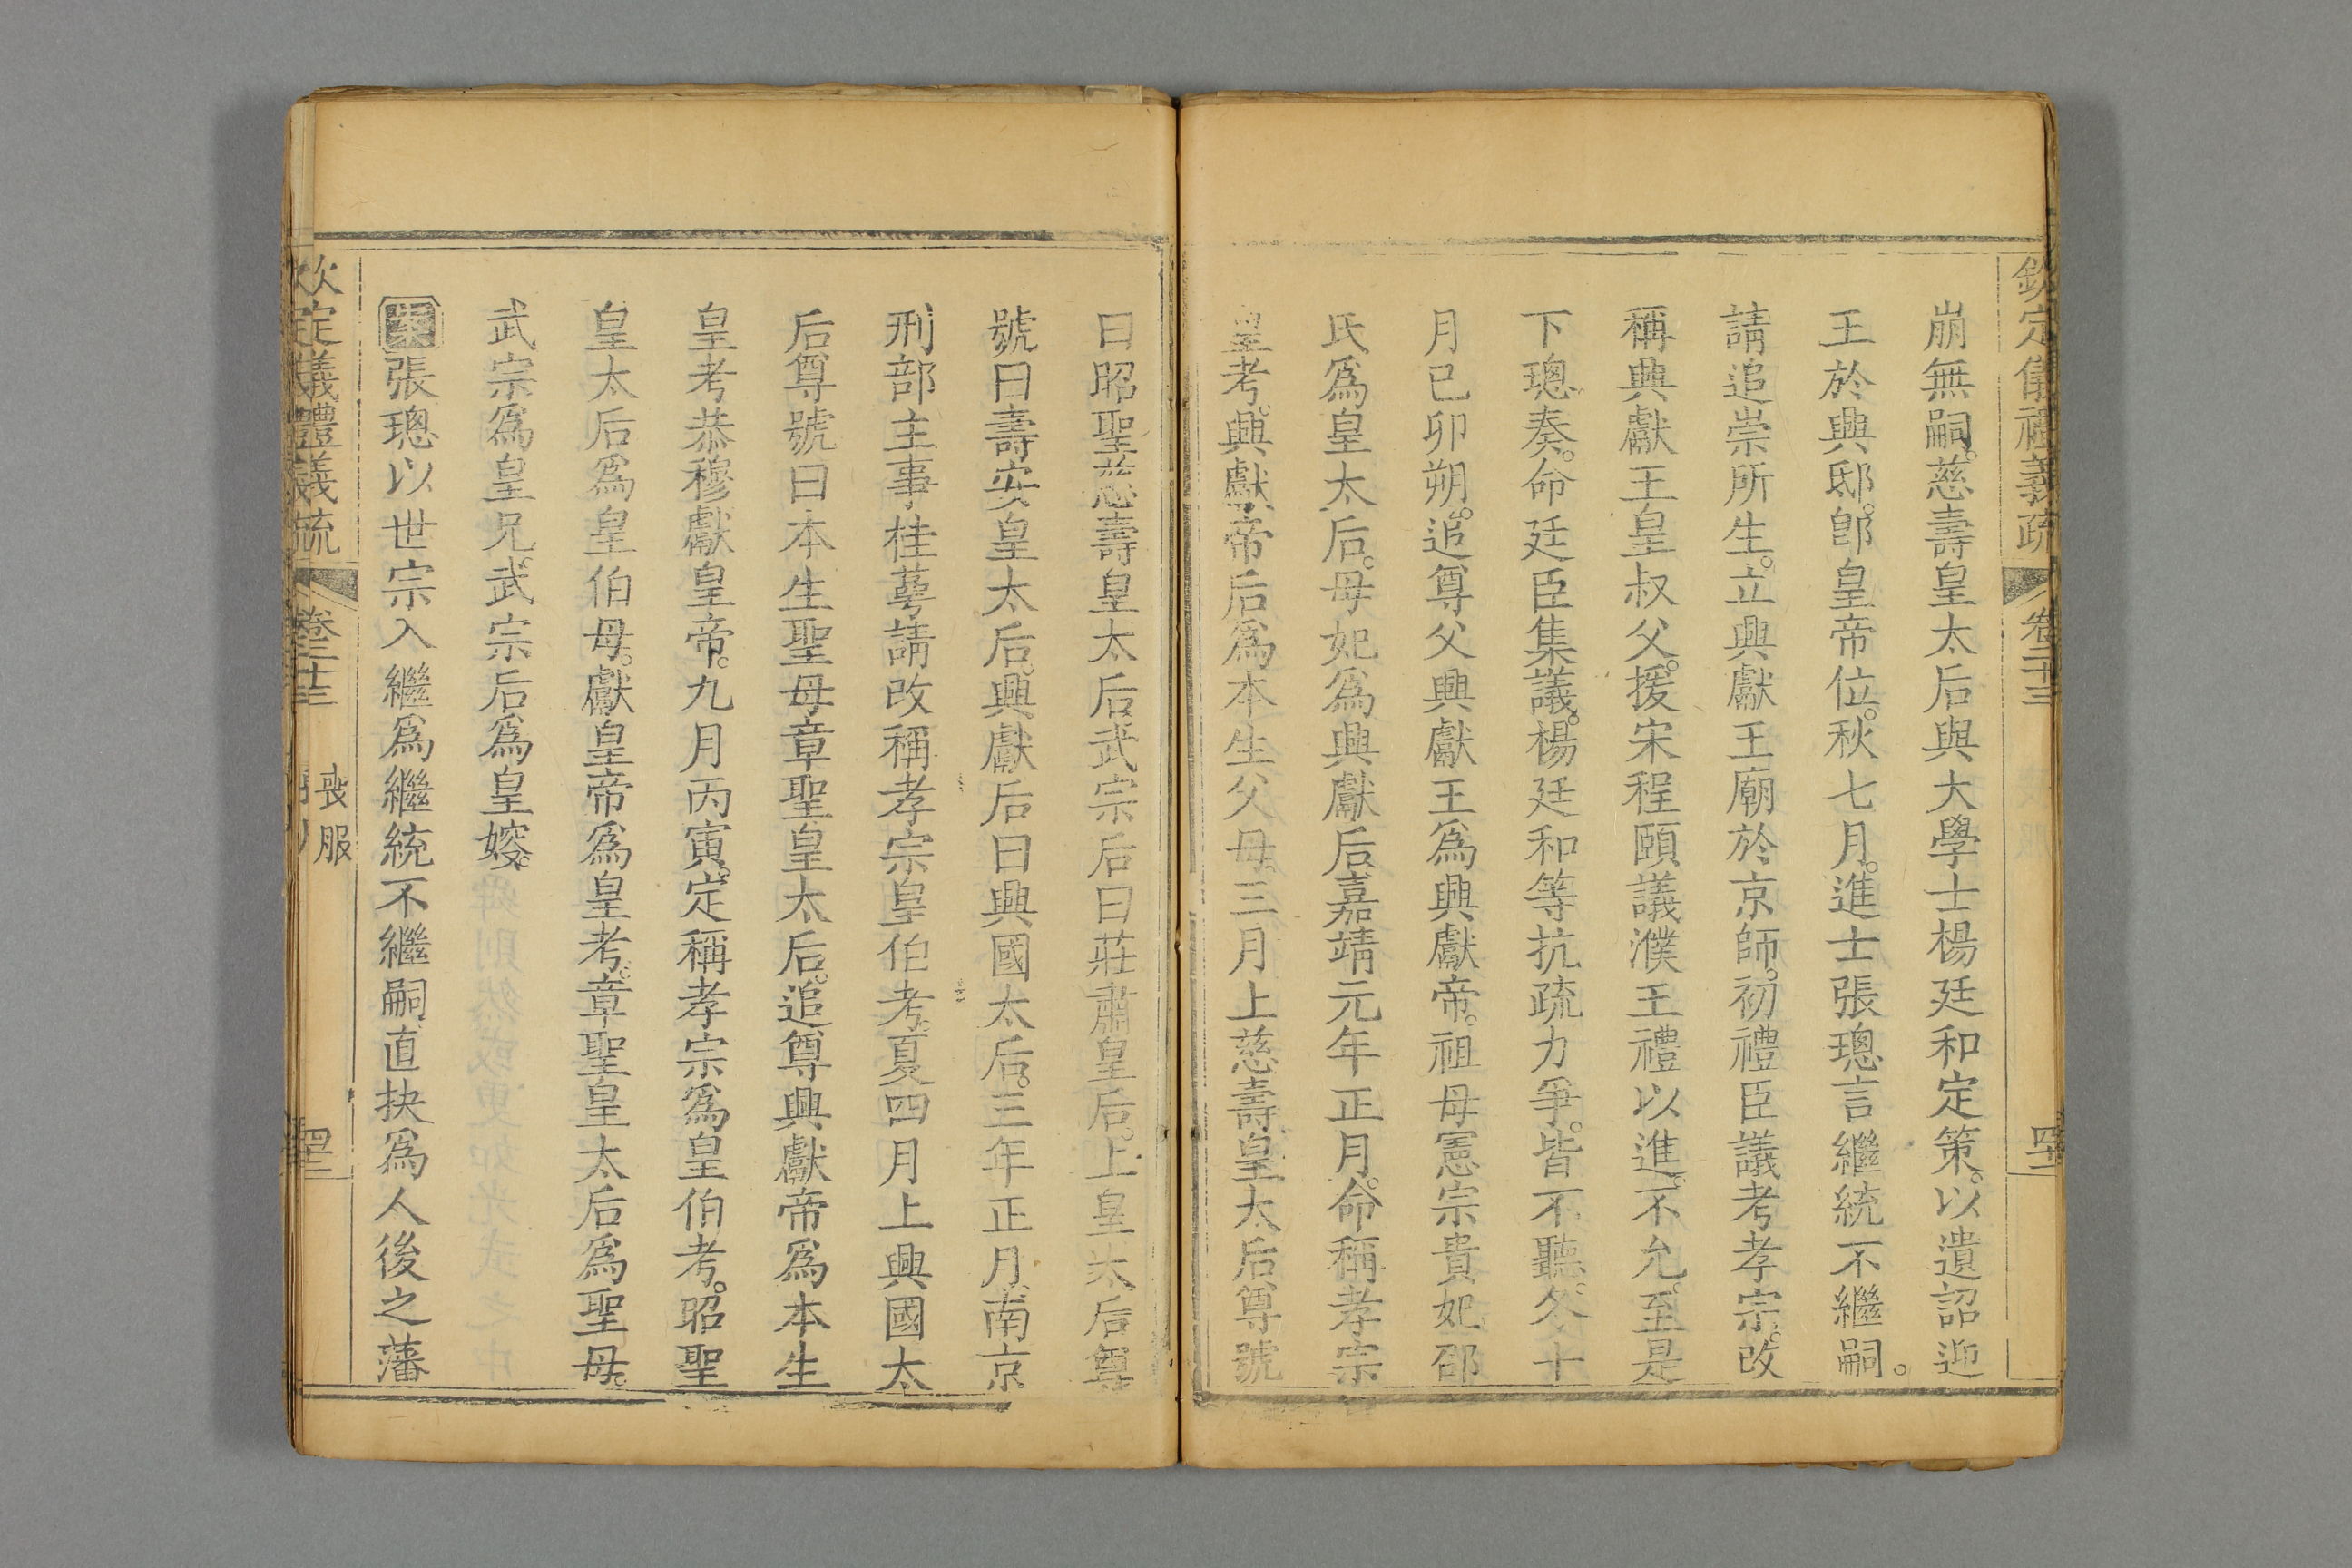 欽定儀禮義疏 卷二十三 四二
崩無嗣。慈壽皇太后與大學士楊廷和定策。以遺詔迎
王於興邸。卽皇帝位。秋七月。進士張璁言繼統不繼嗣。
請追崇所生。立興獻王廟於京師。初禮臣議考孝宗。改
稱興獻王皇叔父。援宋程頤議濮王禮以進。不允。至是
下璁奏。命廷臣集議。楊廷和等抗疏力爭。皆不聽。冬十
月已卯朔。追尊父興獻王爲興獻帝。祖母憲宗貴妃邵
氏爲皇太后。母妃爲興獻后。嘉靖元年正月。命稱孝宗
皇考。興獻帝后爲本生父母。三月上慈壽皇太后尊號
曰昭聖慈壽皇太后武宗后曰莊肅皇后。上皇太后尊
號曰壽安皇太后。興獻后曰興國太后。三年正月。南京
刑部主事桂萼請改稱孝宗皇伯考。夏四月上興國太
后尊號曰本生聖母章聖皇太后。追尊興獻帝爲本生
皇考恭穆獻皇帝。九月丙寅。定稱孝宗爲皇伯考。昭聖
皇太后爲皇伯母。獻皇帝爲皇考。章聖皇太后爲聖母。
武宗爲皇兄。武宗后爲皇嫂。
案張璁以世宗入繼爲繼統不繼嗣直抉爲人後之藩
欽定儀禮義疏 卷二十三 喪服 四二